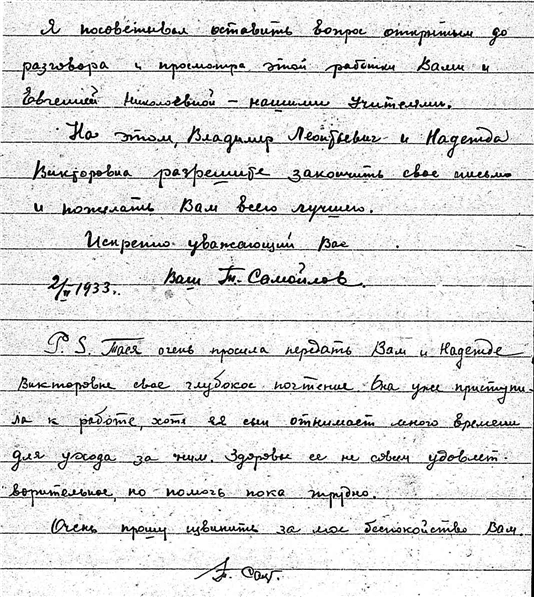 Я посоветывал оставить вопрос открытым до
разговора и просмотра этой работки Вами и
Евгенией Николаевной – нашими Учителями.
На этом, Владимир Леонтьевич и Надежда
Викторовна разрешите закончить свое письмо
и пожелать Вам всего лучшего.
Искренно уважающий Вас
2/II 1933г. Ваш Гр. Самойлов.
P.S. Тася очень просила передать Вам и Надежде
Викторовне свое глубокое почтение. Она уже приступи-
ла к работе, хотя ее сын отнимает много времени
для ухода за ним. Здоровье ее не совсем удовлет-
ворительное, но помочь пока трудно.
Очень прошу извинить за мое беспокойство Вам.
Сам.